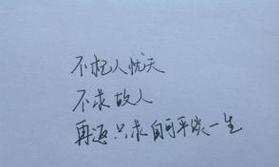 不杞人忧天
不求故人
再返只求自可平淡一生